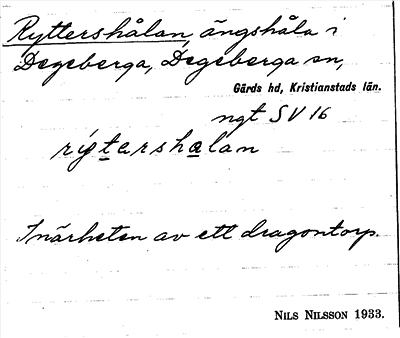 Ryttershålan, ängshåla i
Degeberga, Degeberga sn,
Gärds hd, Kristianstads län.
ngt SV 16
rýtershalan
I närheten av ett dragontorp.
NILS NILSSON 1933.